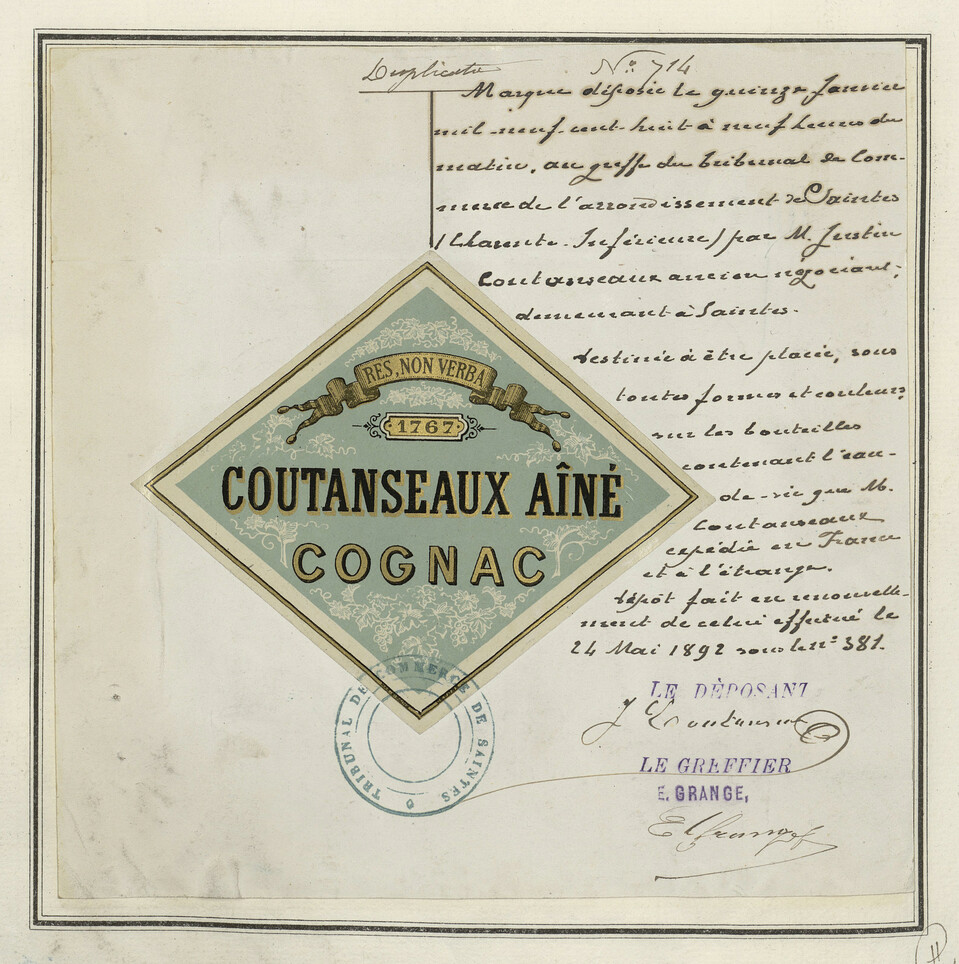 Duplicata
No: 714
Marque déposée le quinze Janvier
mil-neuf-cent-huit à neuf heures du
matin, au greffe du Tribunal de Com-
merce de l'arrondissement de Saintes
(Charente-Inférieure) par M. Justin
Coutanseaux ancien négociant,
demeurant à Saintes.
destinée à être placée, sous
toutes formes et couleurs,
sur les bouteilles
contenant l'eau-
de-vie que M.
Coutanseaux
expédie en France
et à l'étranger.
Dépôt fait en renouvelle-
ment de celui effectué le
24 Mai 1892 sous le n° 381.
RES, NON VERBA
1767
COUTANSEAUX AÎNÉ
COGNAC
TRIBUNAL DE COMMERCE DE SAINTES
LE DÉPOSANT
J Coutanseaux
LE GREFFIER
E. GRANGE,
E Grange